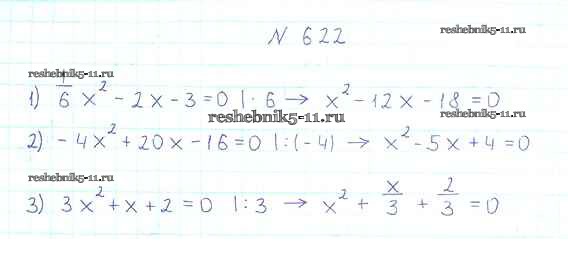 N 622
reshebnik5-11.ru
reshebnik5-11.ru
1) 1/6 x² - 2x - 3 = 0 | · 6 → x² - 12x - 18 = 0
reshebnik5-11.ru
reshebnik5-11.ru
2) -4x² + 20x - 16 = 0 | : (-4) → x² - 5x + 4 = 0
reshebnik5-11.ru
3) 3x² + x + 2 = 0 | : 3 → x² + x/3 + 2/3 = 0